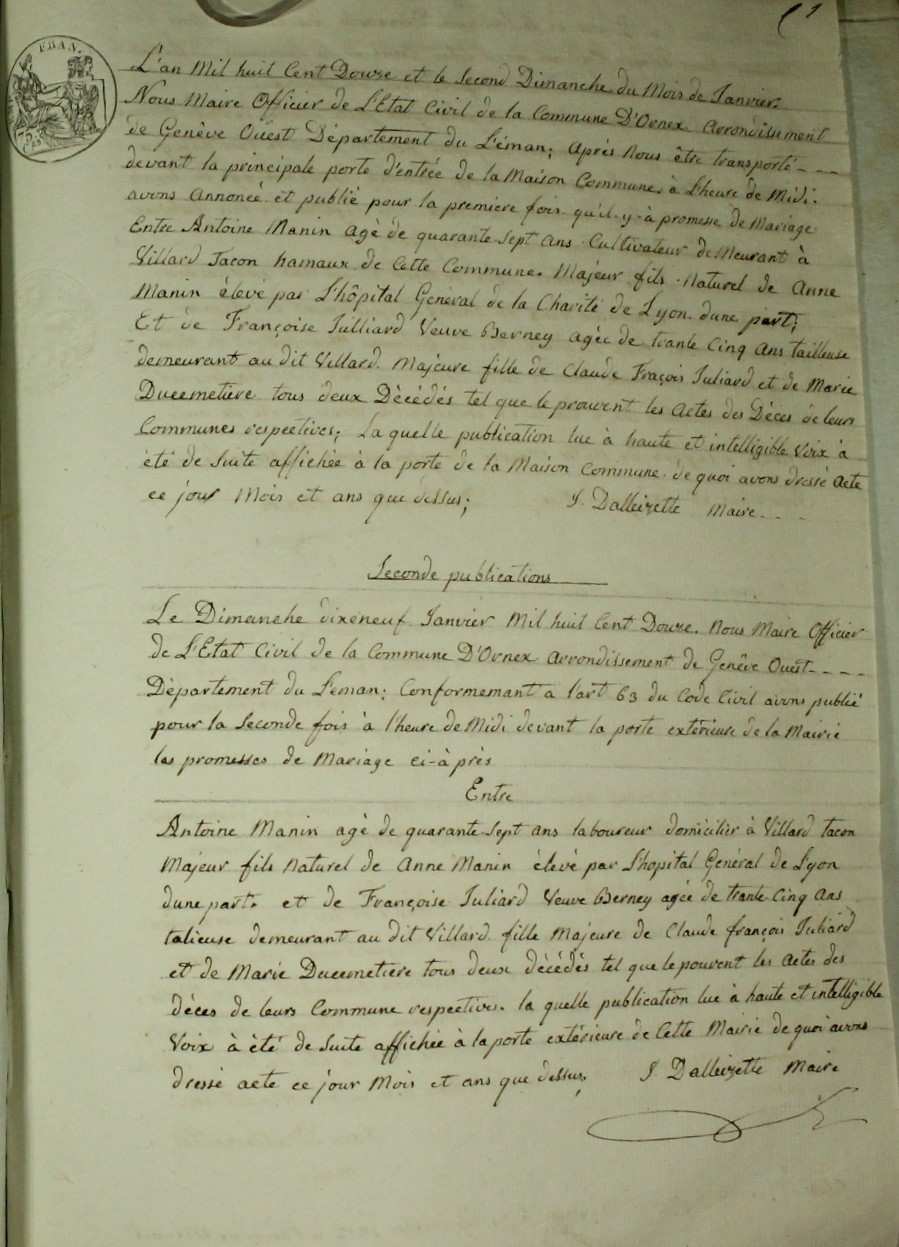 1
L'an Mil huil Cent Douze et le Second Dimanche du Mois de Janvier.
Nous Maire Officier de L'Etat Civil de la Commune D'Ornex Arrondissement
de Genêve Ouest Département du Léman; Après nous être transporté
devant la principale porte d'entrée de la Maison Commune, à L'heure de Midi.
avons Annoncé et publié pour la première fois qu'il-y-à promesse de Mariage
Entre Antoine Manin agé de quarante Sept Ans Cultivateur deMeurant à
Villard Tacon hamaux de Cette Commune. Majeur fils Naturel de Anne
Manin élevé par L'hôpital Général de la Charité de Lyon dune part;
Et de Françoise Julliard Veuve Berney agée de trante Cinq Ans tailleuse
demeurant au dit Villard. Majeure fille de Claude Fraçois Juliard et de Marie
Ducemetière tous deux Décédés tel que le prouvent les Actes des Déces de leurs
Communes respectives; La quelle publication lue à haute et intelligible Voix à
été de Suite affichée à la porte de la Maison Commune de quoi avons dressé Acte
ce jour Mois et ans que dessus; J. Dalleizette Maire
Seconde publications
Le Dimanche dixeneuf Janvier Mil huil Cent Douze. Nous Maire Officier
de L'Etat Civil de la Commune D'Ornex Arrondissement de Genêve Ouest
Département du Léman; Conformemant a l'art 63 du Code Civil avons publié
pour la Seconde fois à l'heure de Midi devant la porte extérieure de la Mairie
les promesses de Mariage ci-à près
Entre
Antoine Manin agé de quarante Sept ans laboureur domicilier à Villard tacon
Majeur fils Naturel de Anne Manin élevé par L'hopital Général de Lyon
dune part. et de Françoise Juliard Veuve Berney agée de trante Cinq Ans
talieuse demeurant au dit Villard fille Majeure de Claude françois Juliard
et de Marie Ducemetiere tous deux décédés tel que le pouvent les Actes des
déces de leurs Commune respectives. la quelle publication lue à haute et intelligible
Voix à été de Suite affichée à la porte extérieure de Cette Mairie de quoi avons
dressé acte ce jour Mois et ans que dessus; J Dalleizette Maire